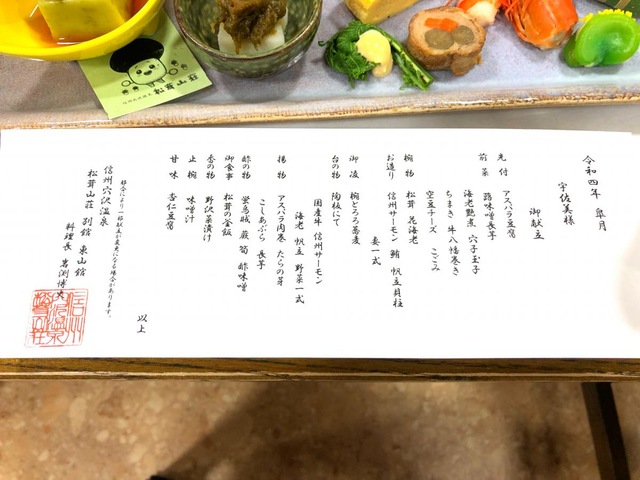 令和四年 皐月
宇佐美様
御献立
先付 アスパラ豆腐
前菜 蕗味噌長芋
海老艶煮 穴子玉子
ちまき 牛八幡巻き
空豆チーズ こごみ
椀物 松茸 花海老
お造り 信州サーモン 鮪 帆立貝柱
妻一式
御凌 椀とろろ蕎麦
台の物 陶板にて
国産牛 信州サーモン
海老 帆立 野菜一式
揚物 アスパラ肉巻 たらの芽
こしあぶら 長芋
酢の物 蛍烏賊 蕨 筍 酢味噌
御食事 松茸の釜飯
香の物 野沢菜漬け
止椀 味噌汁
甘味 杏仁豆腐
以上
都合により一部献立が変更になる場合があります。
信州穴沢温泉
松茸山荘 別館 東山館
料理長 岩渕博
松茸山荘